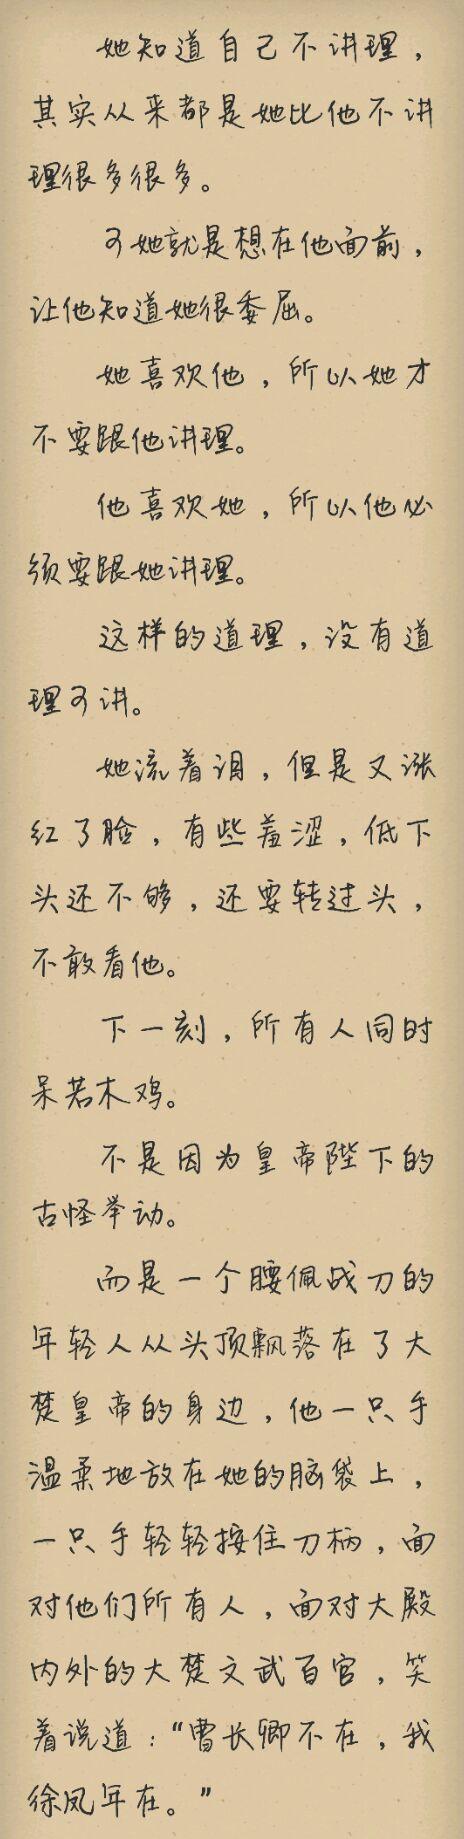 她知道自己不讲理，
其实从来都是她比他不讲
理很多很多。
可她就是想在他面前，
让他知道她很委屈。
她喜欢他，所以她才
不要跟他讲理。
他喜欢她，所以他必
须要跟她讲理。
这样的道理，没有道
理可讲。
她流着泪，但是又涨
红了脸，有些羞涩，低下
头还不够，还要转过头，
不敢看他。
下一刻，所有人同时
呆若木鸡。
不是因为皇帝陛下的
古怪举动。
而是一个腰佩战刀的
年轻人从头顶飘落在了大
楚皇帝的身边，他一只手
温柔地放在她的脑袋上，
一只手轻轻按住刀柄，面
对他们所有人，面对大殿
内外的大楚文武百官，笑
着说道：“曹长卿不在，我
徐凤年在。”